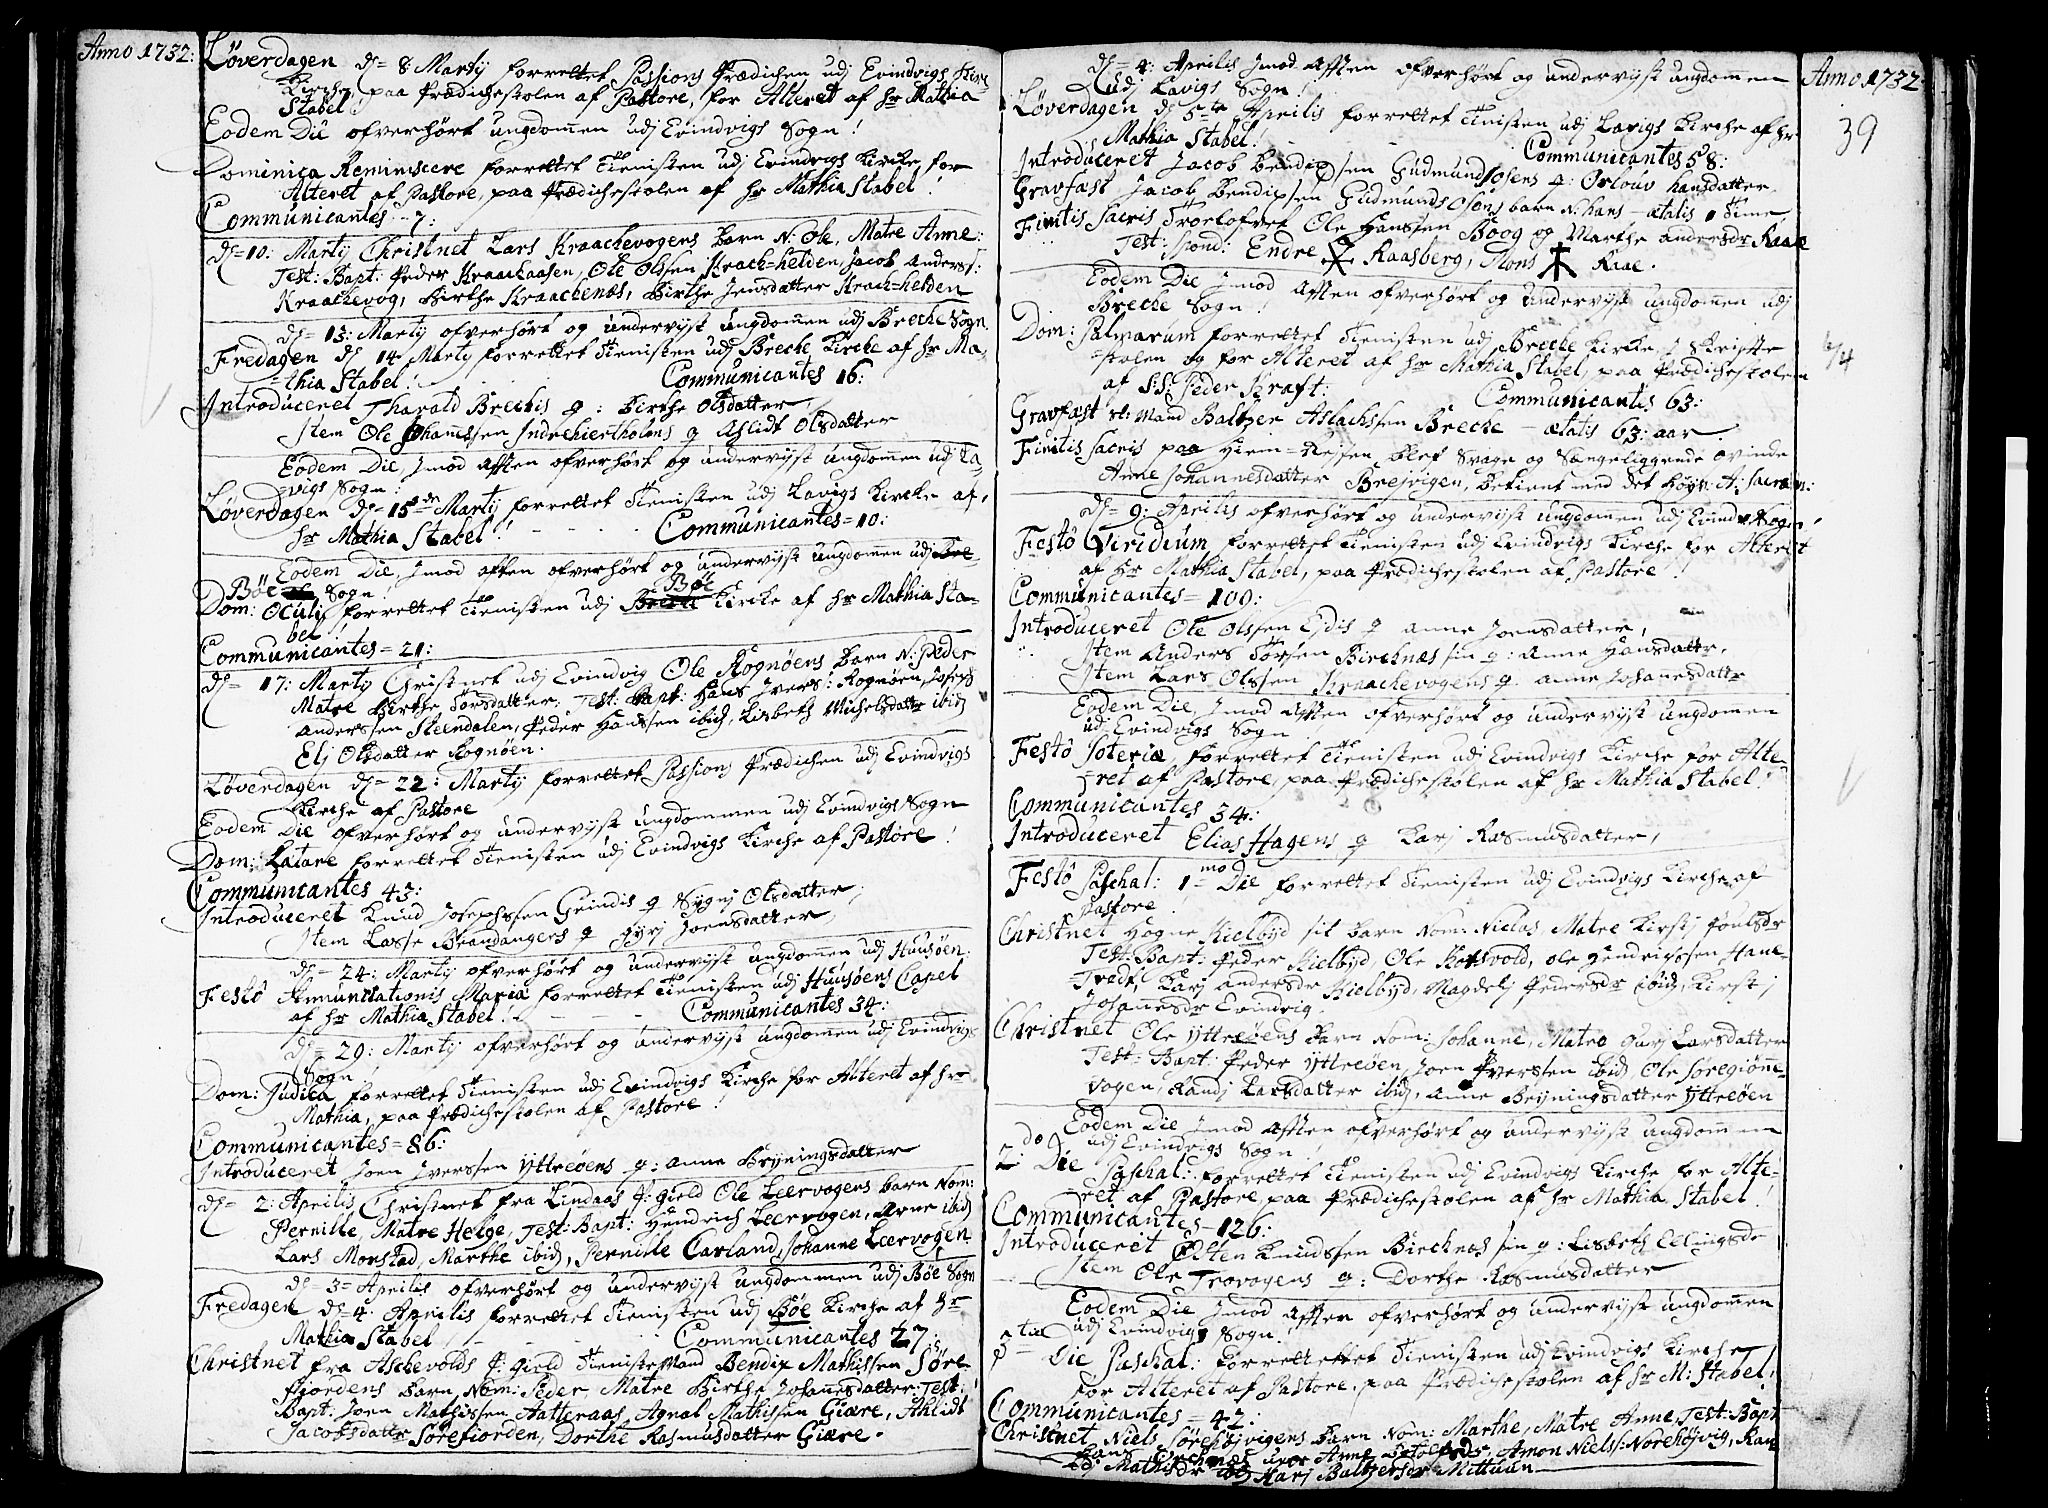 Anno 1732:
Løverdagen d= 8 Martij forrettet Passions Prædichen udj Evindvigs Kir=
Kirche, paa Prædichestolen af Pastore, for Alteret af Hr Mathia
Stabel!
Eodem Die ofverhørt ungdomen udj Evindvigs Sogn!
Dominica Reminiscere forrettet Tienisten udj Evindvigs Kircke, for
Alteret af Pastore, paa Prædichestolen af Hr Mathia Stabel!
Communicantes - 7:
d= 10: Martij Christnet Lars Kraachevogens Barn N: Ole, Matre Anne:
Test: Bapt: Peder Kraackaasen, Ole Olssen Krach=helden, Jacob Anderss:
Kraachevog, Birthe Kraachenæs, Birthe Jensdatter Krach=helden
d= 13: Martij ofverhørt og undervijst ungdommen udj Breche Sogn
Fredagen d= 14 Martij forrettet Tienisten udj Breche Kirche af Hr Ma=
=thia Stabel! Communicantes 16:
Introduceret Tharald Brechis q: Birthe Olsdatter,
Item Ole Johannessen Indrehiertholms q Ahlidt Olsdatter
Eodem Die, Jmod Afften ofverhørt og undervijst ungdommen udj La=
vigs Sogn:
Løverdagen d= 15de Martij forrettet Tienisten udj Lavigs Kircke af,
Hr Mathia Stabel! Communicantes = 10:
Eodem Die, Jmod Aften ofverhørt og undervijst ungdommen udj
Bøe Sogn! Bøe
Dom: Oculi forrettet Tienisten udj Kircke af Hr Mathia Sta=
bel!
Communicantes = 21:
d= 17: Martij Christnet udj Evindvig Ole Rognøens Barn N: Peder
Matre Birthe Torsdatter; Test: Bapt: Hans Jvers: Rognøen, Josephs
Anderssen Steendalen, Peder Hanssen ibid, Lisbeth Michelsdatter ibid
Elj Olsdatter Rognøen.
Løverdagen d= 22: Martij forrettet Passions Prædichen udj Evindvigs
Kirche af Pastore
Eodem Die ofverhørt og undervijst ungdommen udj Evindvigs Sogn
Dom: Lætare forrettet Tienisten udj Evindvigs Kirche af Pastore!
Communicantes 43:
Introduceret Knud Josephssen Grindis q Sygnj Olsdatter;
Item Lasse Brandangers q Gyrj Joensdatter,
d= 24: Martij ofverhørt og undervijst ungdommen udj Huusøen
Festô Annunciationis Mariæ forrettet Tienisten udj Huusøens Capel
af Hr Mathia Stabel! Communicantes 34:
d= 29: Martij ofverhørt og undervijst ungdommen udj Evindvigs
Sogn
Dom: Judica forrettet Tienisten udj Evindvigs Kirche for Alteret af Hr
Mathia, paa Prædichestolen af Pastore!
Communicantes = 86:
Introduceret Joen Jverssen Yttreøens q: Anne Bryningsdatter
d= 2: Aprilis Christnet fra Lindaas P: gield Ole Leervogens Barn Nom:
Pernille, Matre Helge, Test: Bapt: Hendrich Leervogen, Arne ibid
Lars Morstad, Marthe ibid, Pernille Carland, Johanne Leervogen
d= 3= Aprilis ofverhørt og undervijst ungdommen udj Bøe Sogn
Fredagen d= 4. Aprilis forrettet Tienisten udj Bøe Kirche af Hr
Mathia Stabel! Communicantes 27:
Christnet fra Aschevolds P: gield Tienistemand Bendix Mathissen Søre
fiordens Barn Nom: Peder, Matre Birthe Johannesdatter: Test:
Bapt: Joen Mathissen Aatteraas, Agnal Mathissen Giære, Ahlidt
Jacobsdatter Sørefiorden, Dorthe Rasmusdatter Giære.
Anno 1732
39
d= 4: Aprilis Jmod Afften ofverhørt og undervijst ungdommen
udj Lavigs Sogn!
Løverdagen d= 5te Aprilis forrettet Tienisten udj Lavigs Kirche af Hr
Mathia Stabel! Communicantes 58:
Introduceret Jacob Bendixsen Gudmundsosens q: Orlouv Hansdatter
Gravfæst Jacob Bendixsen Gudmunds Osens barn N: Hans - ætatis 1 Time,
Finitis Sacris Troelofvet Ole Hanssen Böog og Marthe Andersdr Raae
Test: spond: Endre Raasberg, Mons Raae.
Eodem Die Jmod Afften ofverhørt og undervijst ungdommen udj
Breche Sogn!
Dom: Palmarum forrettet Tienisten udj Breche Kirche, J Skrifte
=stolen og for Alteret af Hr Mathia Stabel, paa Prædichestolen
af S:S: Peder Kraft: Communicantis 63:
6/4
Gravfæst sl: Mand Baltzer Aslachssen Breche - ætatis 63: aar.
Finitis Sacris paa Hiem=Rejsen blef svage og sengeliggende qvinde
Anne Johannesdatter Brejvigen, betient med det høyv: A: Sacram:
d= 9: Aprilis ofverhørt og undervijst ungdommen udj Evindv: Sogn!
Festô Viridium forrettet Tienisten udj Evindvigs Kirche for Alteret
af Hr Mathia Stabel, paa Prædichestolen af Pastore!
Communicantes = 100:
Introduceret Ole Olssen Ejdis q Anne Joensdatter,
Item Anders Torsen Birchnæs sin q: Anne Hansdatter,
Item Lars Olssen Kraachevogens q. Anne Johannesdattr
Eodem Die, Jmod Afften ofverhørt og undervijst ungdommen
udj Evindvigs Sogn
Festô Soteriæ, forrettet Tienisten udj Evindvigs Kirche for Alte=
=ret af Pastore, paa Prædichestolen af Hr Mathia Stabel!
Communicantes 34:
Introduceret Elias Hagens q Karj Rasmusdatter,
Festô Paschal: 1mo Die forrettet Tienisten udj Evindvigs Kirche af
Pastore!
Christnet Hogne Kielbyd sit Barn Nom: Niclas, Matre Kirstj Poulsdr
Test: Bapt: Peder Kielbyd, Ole Kotsvold, Ole Hendrichssen Hane=
Tvedt, Karj Andersdr Kielbyd, Magdelj Pedersdr ibid, Kirstj
Johannesdr Evindvig.
Christnet Ole Yttreøens Barn Nom: Johanne, Matre Gurj Larsdatter
Test: Bapt: Peder Yttreøen, Joen Jverssen ibid, Ole Søregiønne=
vogen, Randj Larsdatter ibid, Anne Bryningsdatter Yttreøen
Eodem Die Jmod Afften ofverhørt og undervijst ungdommen
udj Evindvigs Sogn!
2do Die Paschal: forrettet Tienisten udj Evindvigs Kirche for Alte=
ret af Pastore, paa Prædichestolen af Hr Mathia Stabel!
Communicantes - 126:
Introduceret Elten Knudssen Birchnæs sin q: Lisbeth Ellingsdr
Item Ole Trovogens q: Dorthe Rasmusdatter
Eodem Die Jmod Afften ofverhørt og undervijst ungdommen
udj Evindvigs Sogn!
3tia Die Paschal: forrettet Tienisten udj Evindvigs Kirche
for Alteret af Pastore, paa Prædichestolen af Hr M: Stabel!
Communicantes = 42:
Christnet Niels Sørehøjvigens Barn Nom: Marthe, Matre Anne, Test: Bapt
Hans Birchnæs uxor Anne, Amon Niels: Norehøjvig, Kan
Mathisdr ibid, Karj Baltzersdr Mittuun